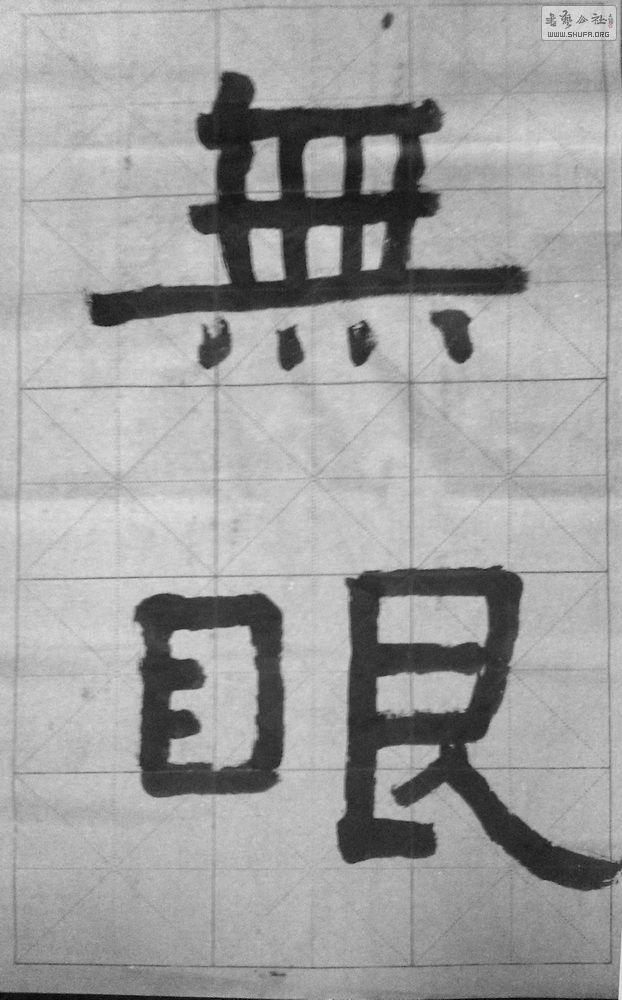 無
眼
書藝公社
WWW.SHUFA.ORG